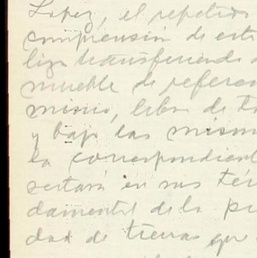 Lopez, el repetido
comprensión de est
liza transfiriendo
mueble de referen
mismo, libre de t
y bajo las mism
la correspondient
sertará en sus tér
damental de la pr
dad de tierras que